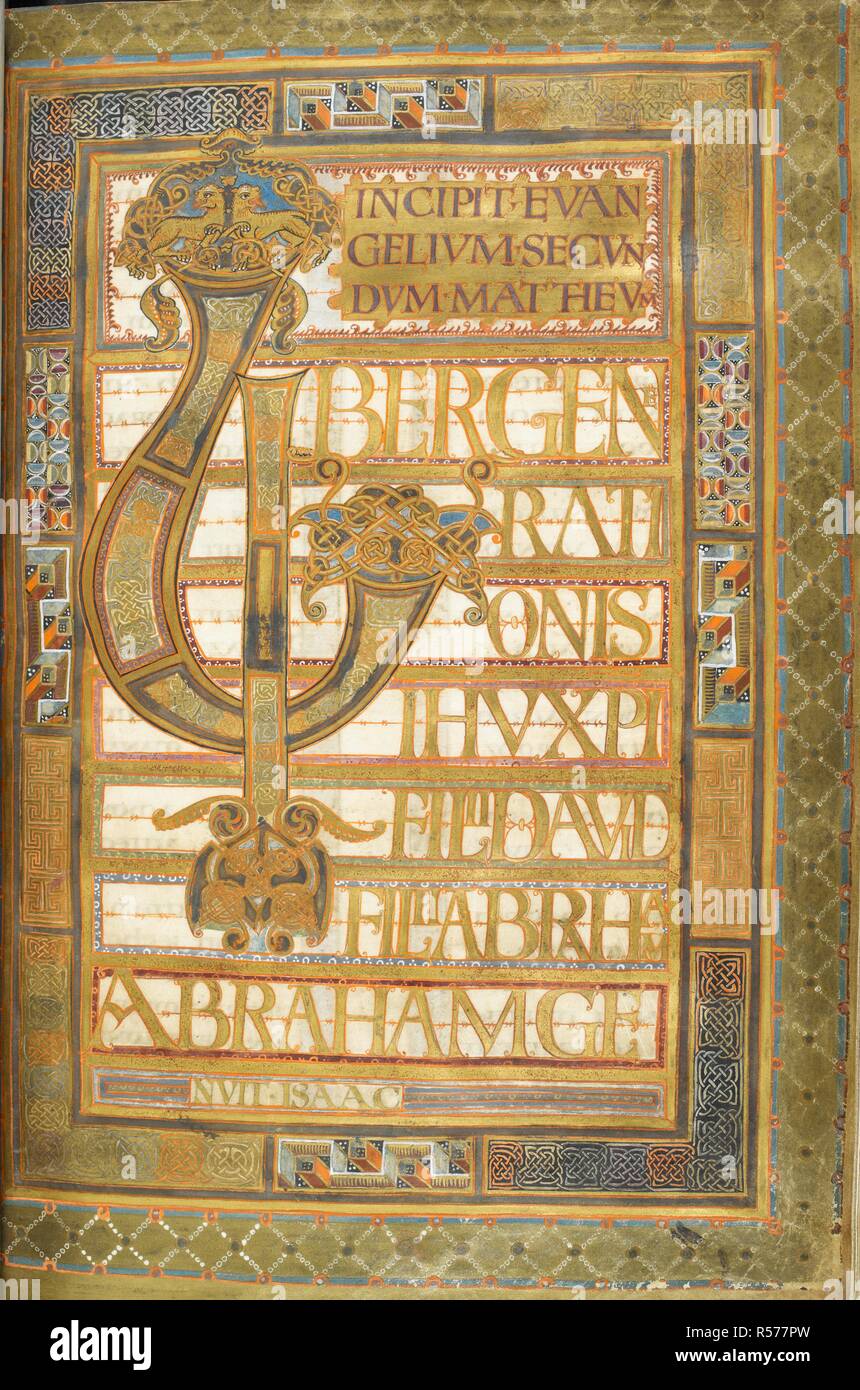 INCIPIT·EVAN
GELIVM·SECVN
DVM·MATTHEVM
LIBER GENE
RATI
ONIS
IHV XPI
FILII DAVID
FILII ABRAHAM
ABRAHAM GE
NVIT·ISAAC
alamy
Image ID: R577PW
www.alamy.com